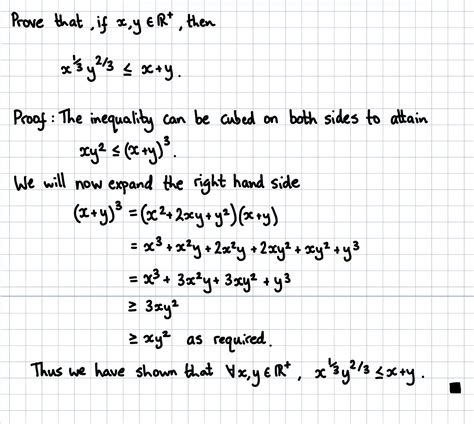 Prove that, if x,y ∈ ℝ⁺, then
x^{1/3} y^{2/3} ≤ x+y.
Proof: The inequality can be cubed on both sides to attain
xy² ≤ (x+y)³.
We will now expand the right hand side
(x+y)³ = (x²+2xy+y²)(x+y)
= x³+x²y+2x²y+2xy²+xy²+y³
= x³+3x²y+3xy²+y³
≥ 3xy²
≥ xy² as required.
Thus we have shown that ∀x,y ∈ ℝ⁺, x^{1/3} y^{2/3} ≤ x+y. ■